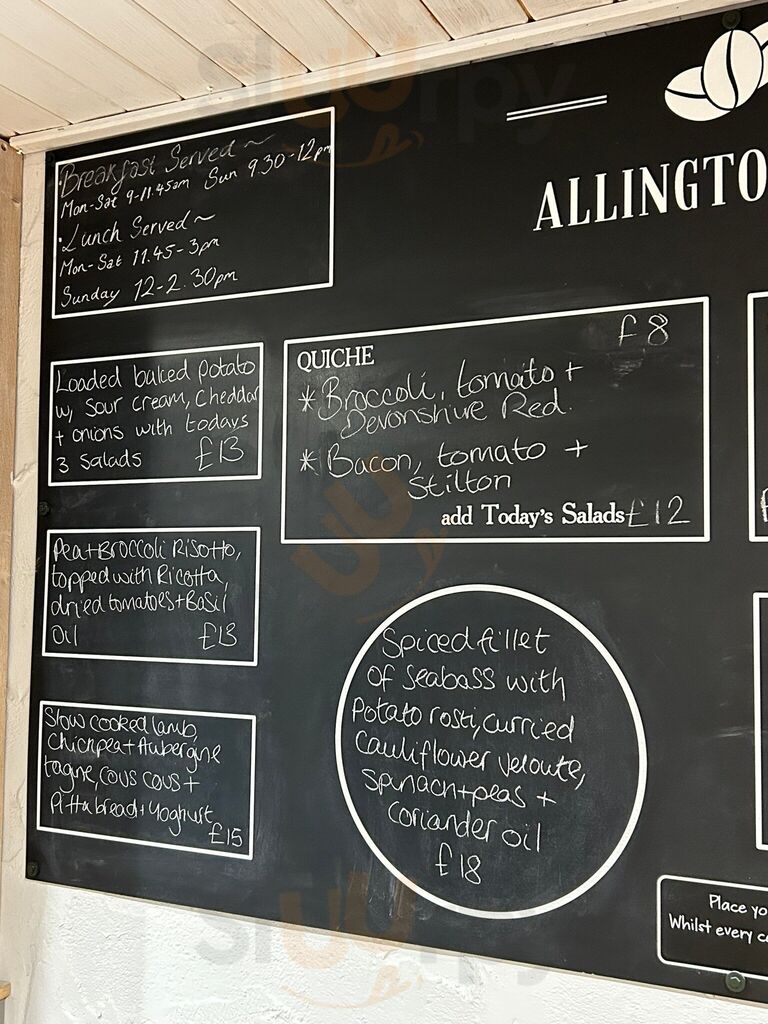 Breakfast Served ~
Mon-Sat 9-11.45am Sun 9.30-12pm
Lunch Served ~
Mon-Sat 11.45-3pm
Sunday 12-2.30pm
ALLINGTO
Loaded baked potato
w, sour cream, Cheddar
+ onions with todays
3 salads £13
QUICHE £8
* Broccoli, tomato +
Devonshire Red.
* Bacon, tomato +
Stilton
add Today's Salads £12
Pea + Broccoli Risotto,
topped with Ricotta,
dried tomatoes + Basil
Oil £13
Slow cooked lamb,
Chickpea + Aubergne
tagne, cous cous +
Pitta bread + Yoghurt
£15
Spiced fillet
of Seabass with
Potato rosti, curried
Cauliflower veloute,
Spinach + peas +
Coriander oil
£18
Place yo
Whilst every c
Sluurpy
Sluurpy